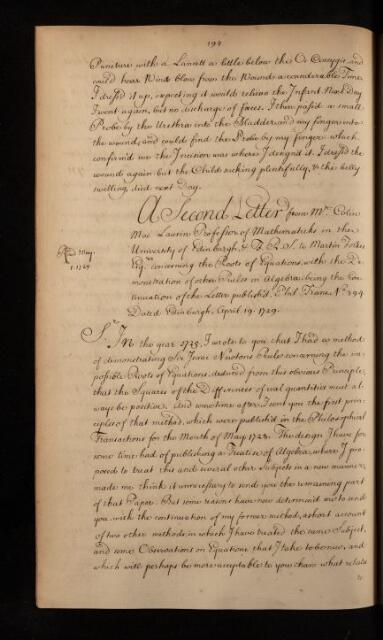 194
Puncture with a Lancett a little below the Os Coccygis and
could hear Wind blow from the Wound a considerable Time
I dress'd it up, expecting it would relieve the Infant. Next Day
I went again, but no discharge of fæces. I then pass'd a small
Probe by the Urethra into the Bladder, and my finger into
the wound, and could find the Probe by my finger which
confirm'd me the Incision was where I design'd it. I dress'd the
wound again but the Child sucking plentifully, & the belly
swelling, died next Day.
A Second Letter from Mr. Colin
Mac Laurin Professor of Mathematicks in the
University of Edinburgh & F. R. S. to Martin Folkes
Esq. concerning the Roots of Equations, with the De
monstration of other Rules in Algebra being the Con
tinuation of the Letter publish'd Phil. Trans. No. 394
Dated Edinburgh, April 19. 1729.
May
1. 1729
Sr. In the year 1725, I wrote to you that I had a method
of demonstrating Sir Isaac Newtons Rule concerning the im
possible Roots of Equations, deduced from this obvious Principle,
that the Squares of the Differences of real quantities must al
ways be positive. And some time after, I sent you the first prin
ciples of that method, which were publish'd in the Philosophical
Transactions for the Month of May, 1726. The design I have for
some time had of publishing a Treatise of Algebra, where I pro
posed to treat this and several other Subjects in a new manner,
made me think it unnecessary to send you the remaining part
of that Paper. But some reasons have now determin'd me to send
you with the continuation of my former method, a short account
of two other methods in which I have treated the same Subject,
and some Observations on Equations that I take to be new, and
which will perhaps be more acceptable to you than what relates
to